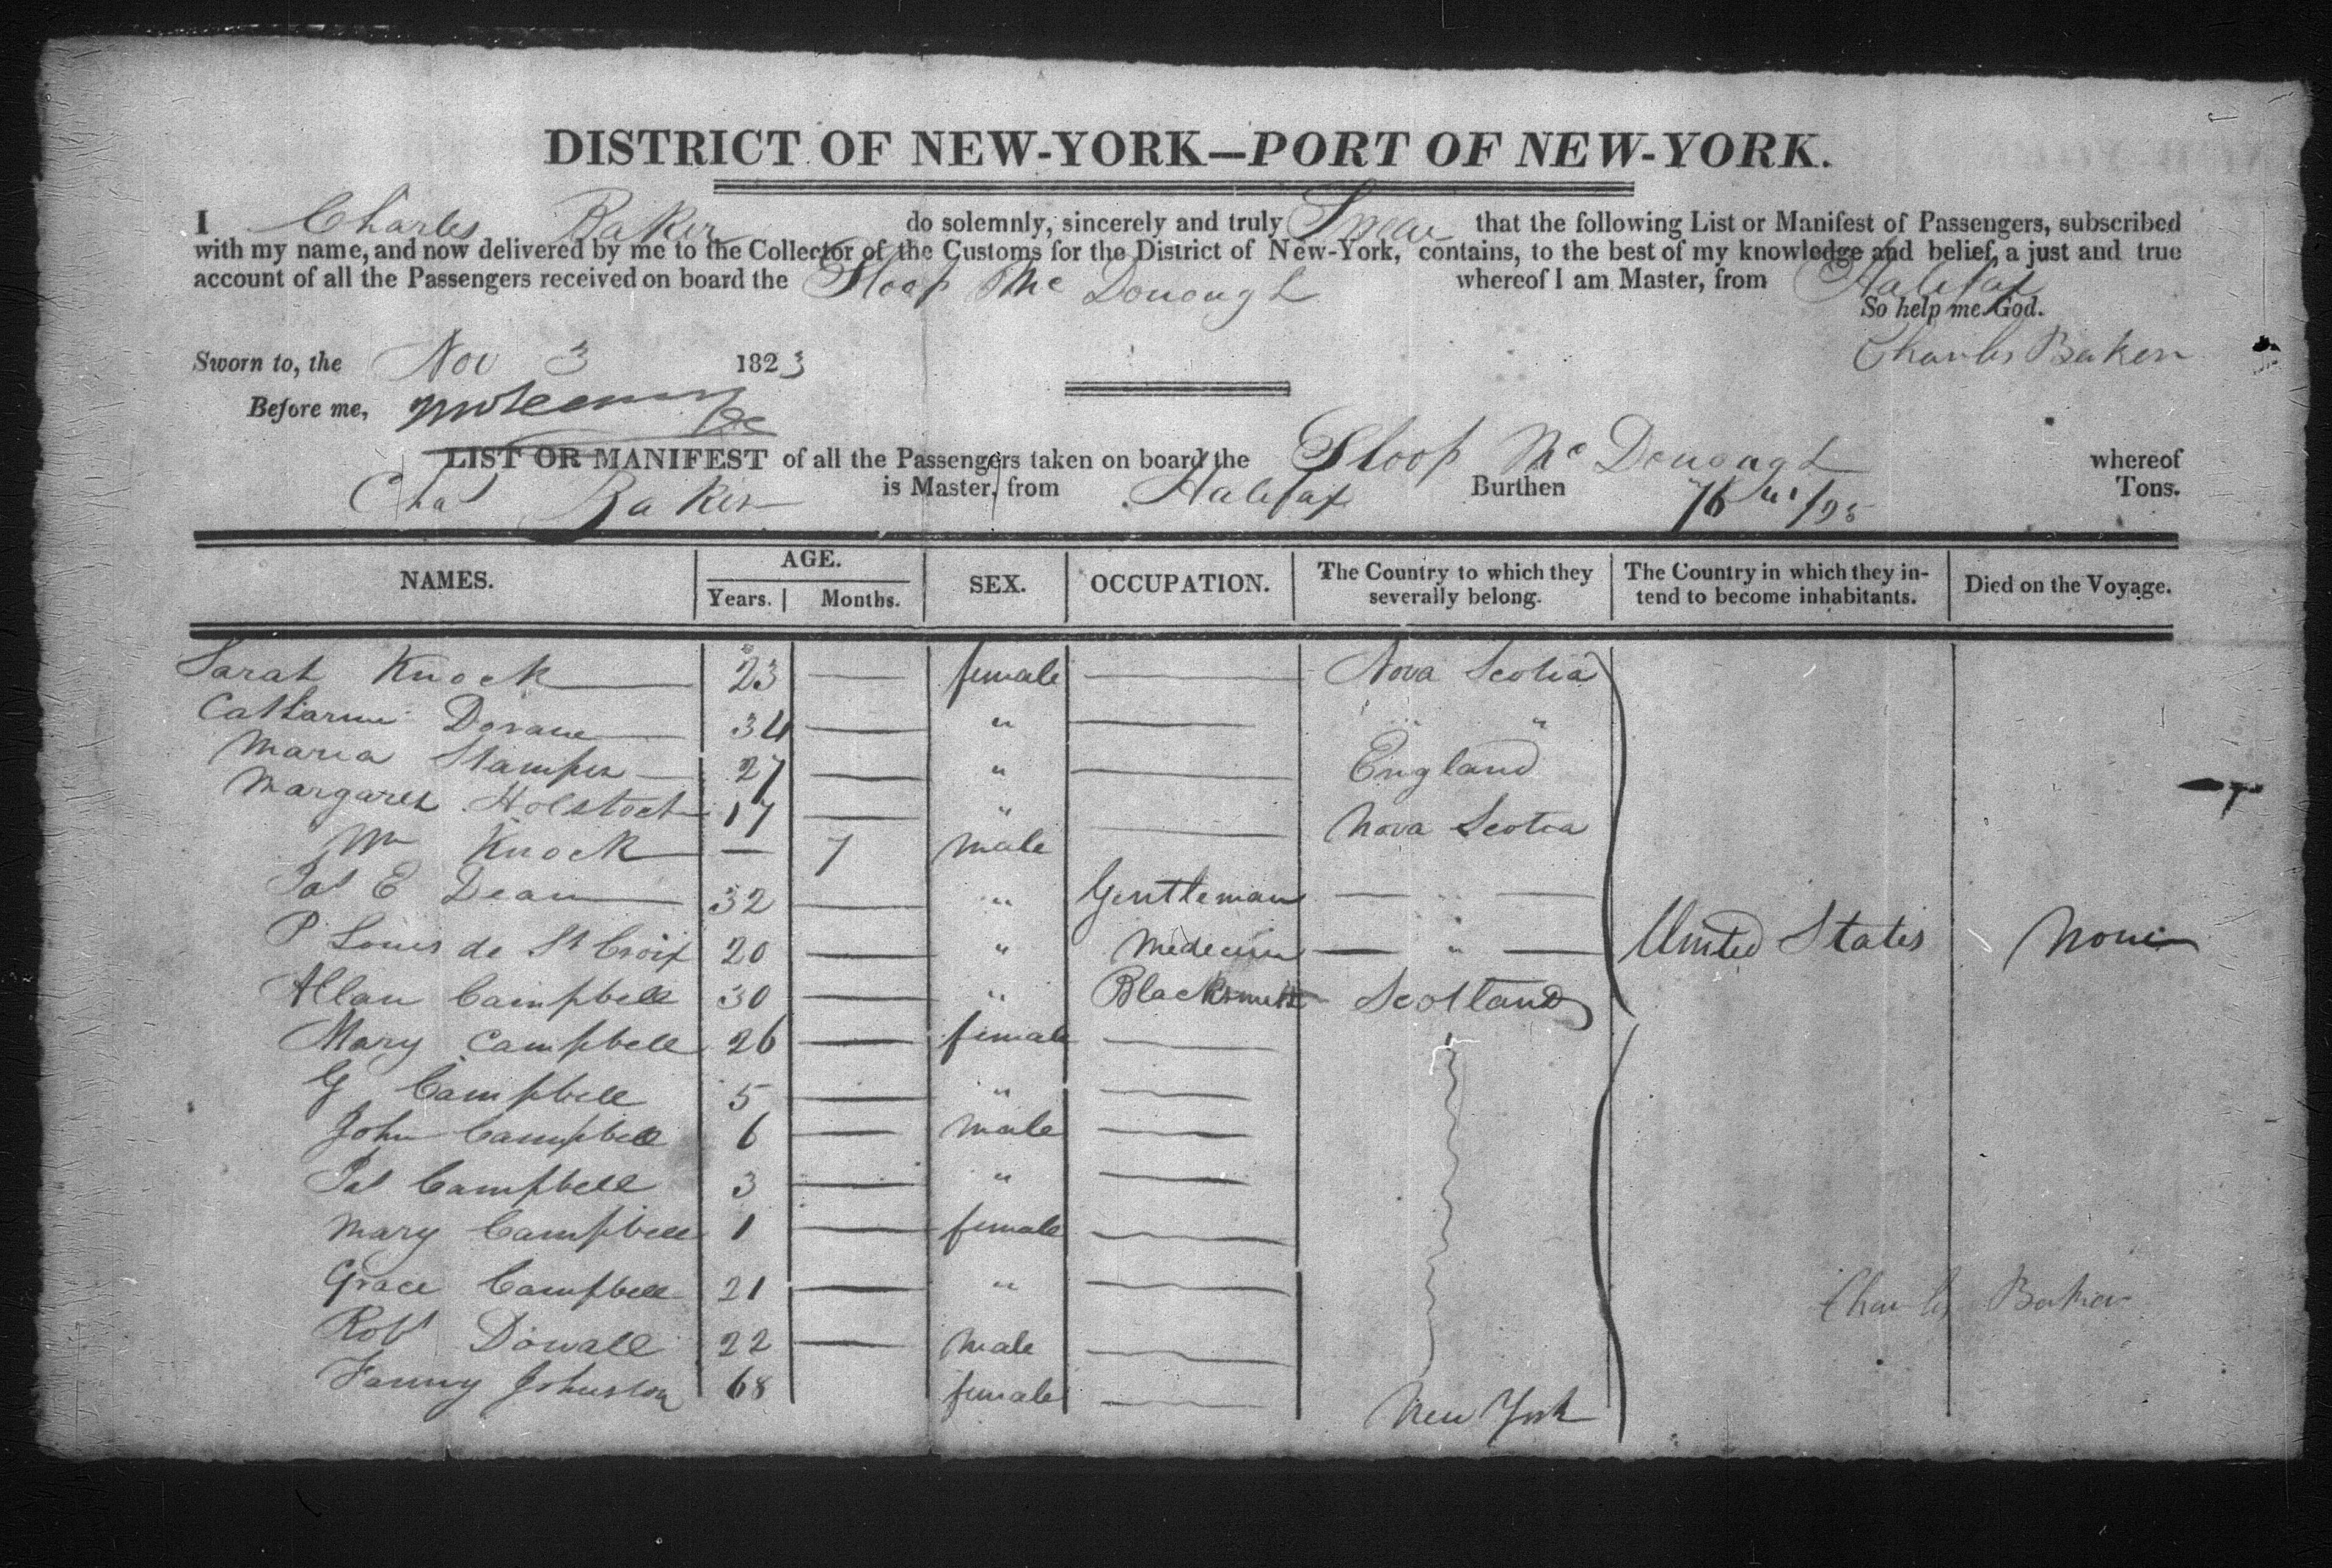 DISTRICT OF NEW-YORK—PORT OF NEW-YORK.
I Charles Baker do solemnly, sincerely and truly Swear that the following List or Manifest of Passengers, subscribed
with my name, and now delivered by me to the Collector of the Customs for the District of New-York, contains, to the best of my knowledge and belief, a just and true
account of all the Passengers received on board the Sloop Mc Donough whereof I am Master, from Halifax
So help me God.
Sworn to, the Nov 3 1823 Charles Baker
Before me,
LIST OR MANIFEST of all the Passengers taken on board the Sloop Mc Donough whereof
Chas Baker is Master, from Halifax Burthen 76 /95 Tons.
NAMES. AGE. Years. Months. SEX. OCCUPATION. The Country to which they severally belong. The Country in which they intend to become inhabitants. Died on the Voyage.
Sarah Knock 23 — female — Nova Scotia
Catharine Dorane 34 — " — " "
Maria Stamper 27 — " — England
Margaret Holstock 17 — " — Nova Scotia
Wm Knock — 7 male
Jas E Dean 32 — " Gentleman — " —
P Louis de St Croix 20 — " Medecine — " — United States None
Allan Campbell 30 — " Blacksmith Scotland
Mary Campbell 26 — female —
G Campbell 5 — " —
John Campbell 6 — male —
Jas Campbell 3 — " —
Mary Campbell 1 — female —
Grace Campbell 21 — " — Charles Baker
Robt Dowall 22 — male —
Fanny Johnston 68 female — New York